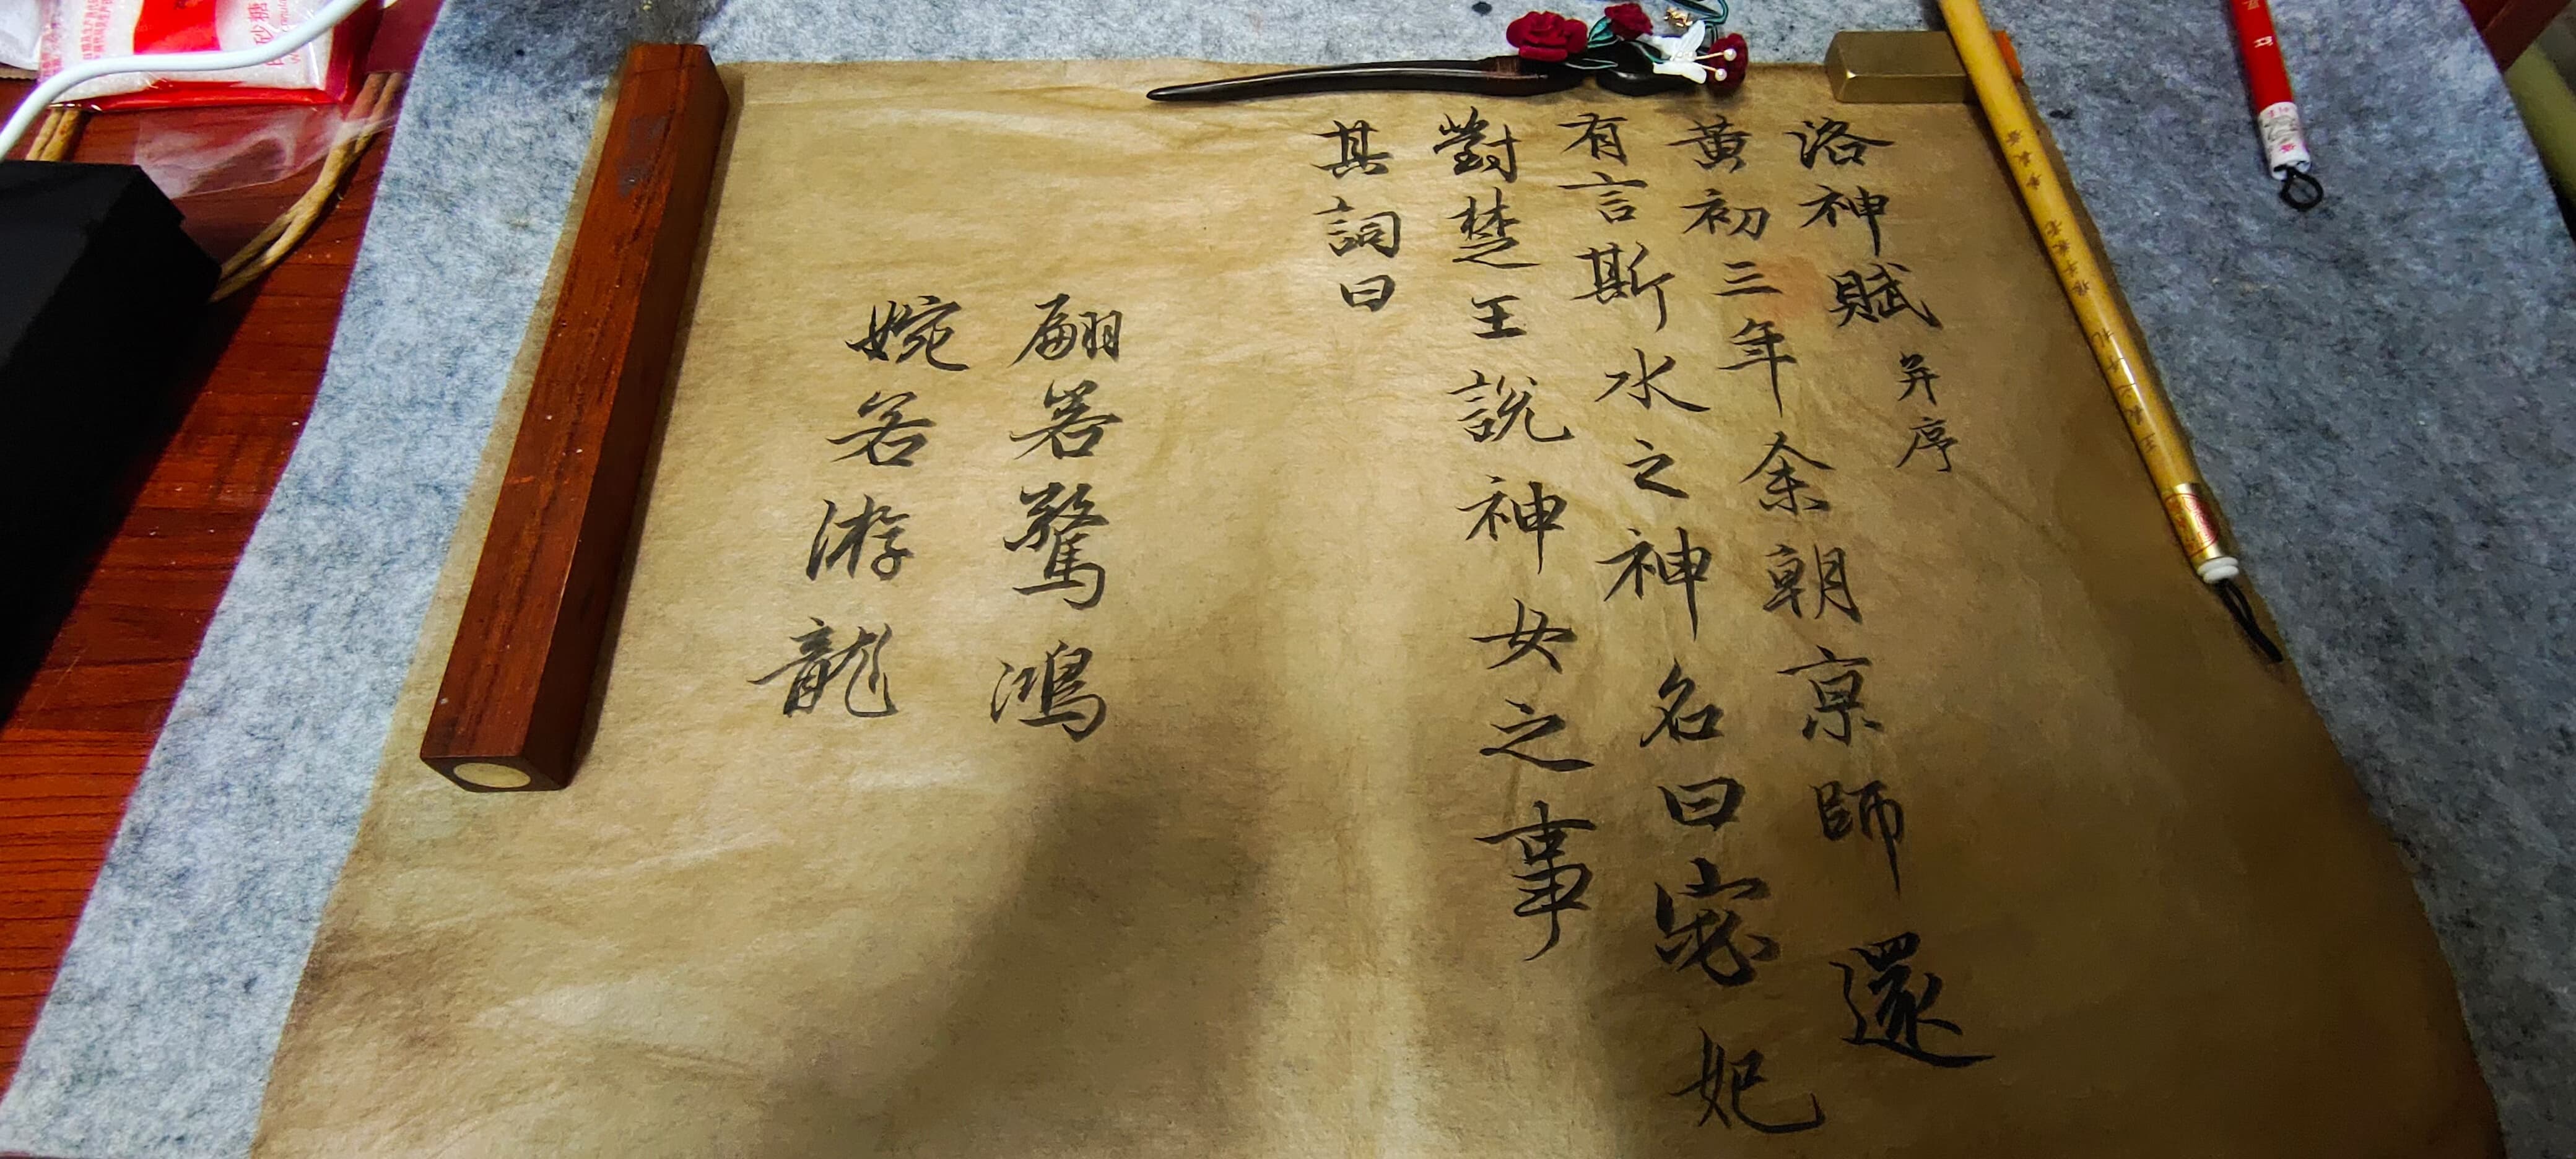 洛神賦 并序
黃初三年余朝京師還
有言斯水之神名曰宓妃
對楚王説神女之事
其詞曰
翩若驚鴻
婉若游龍
砂糖